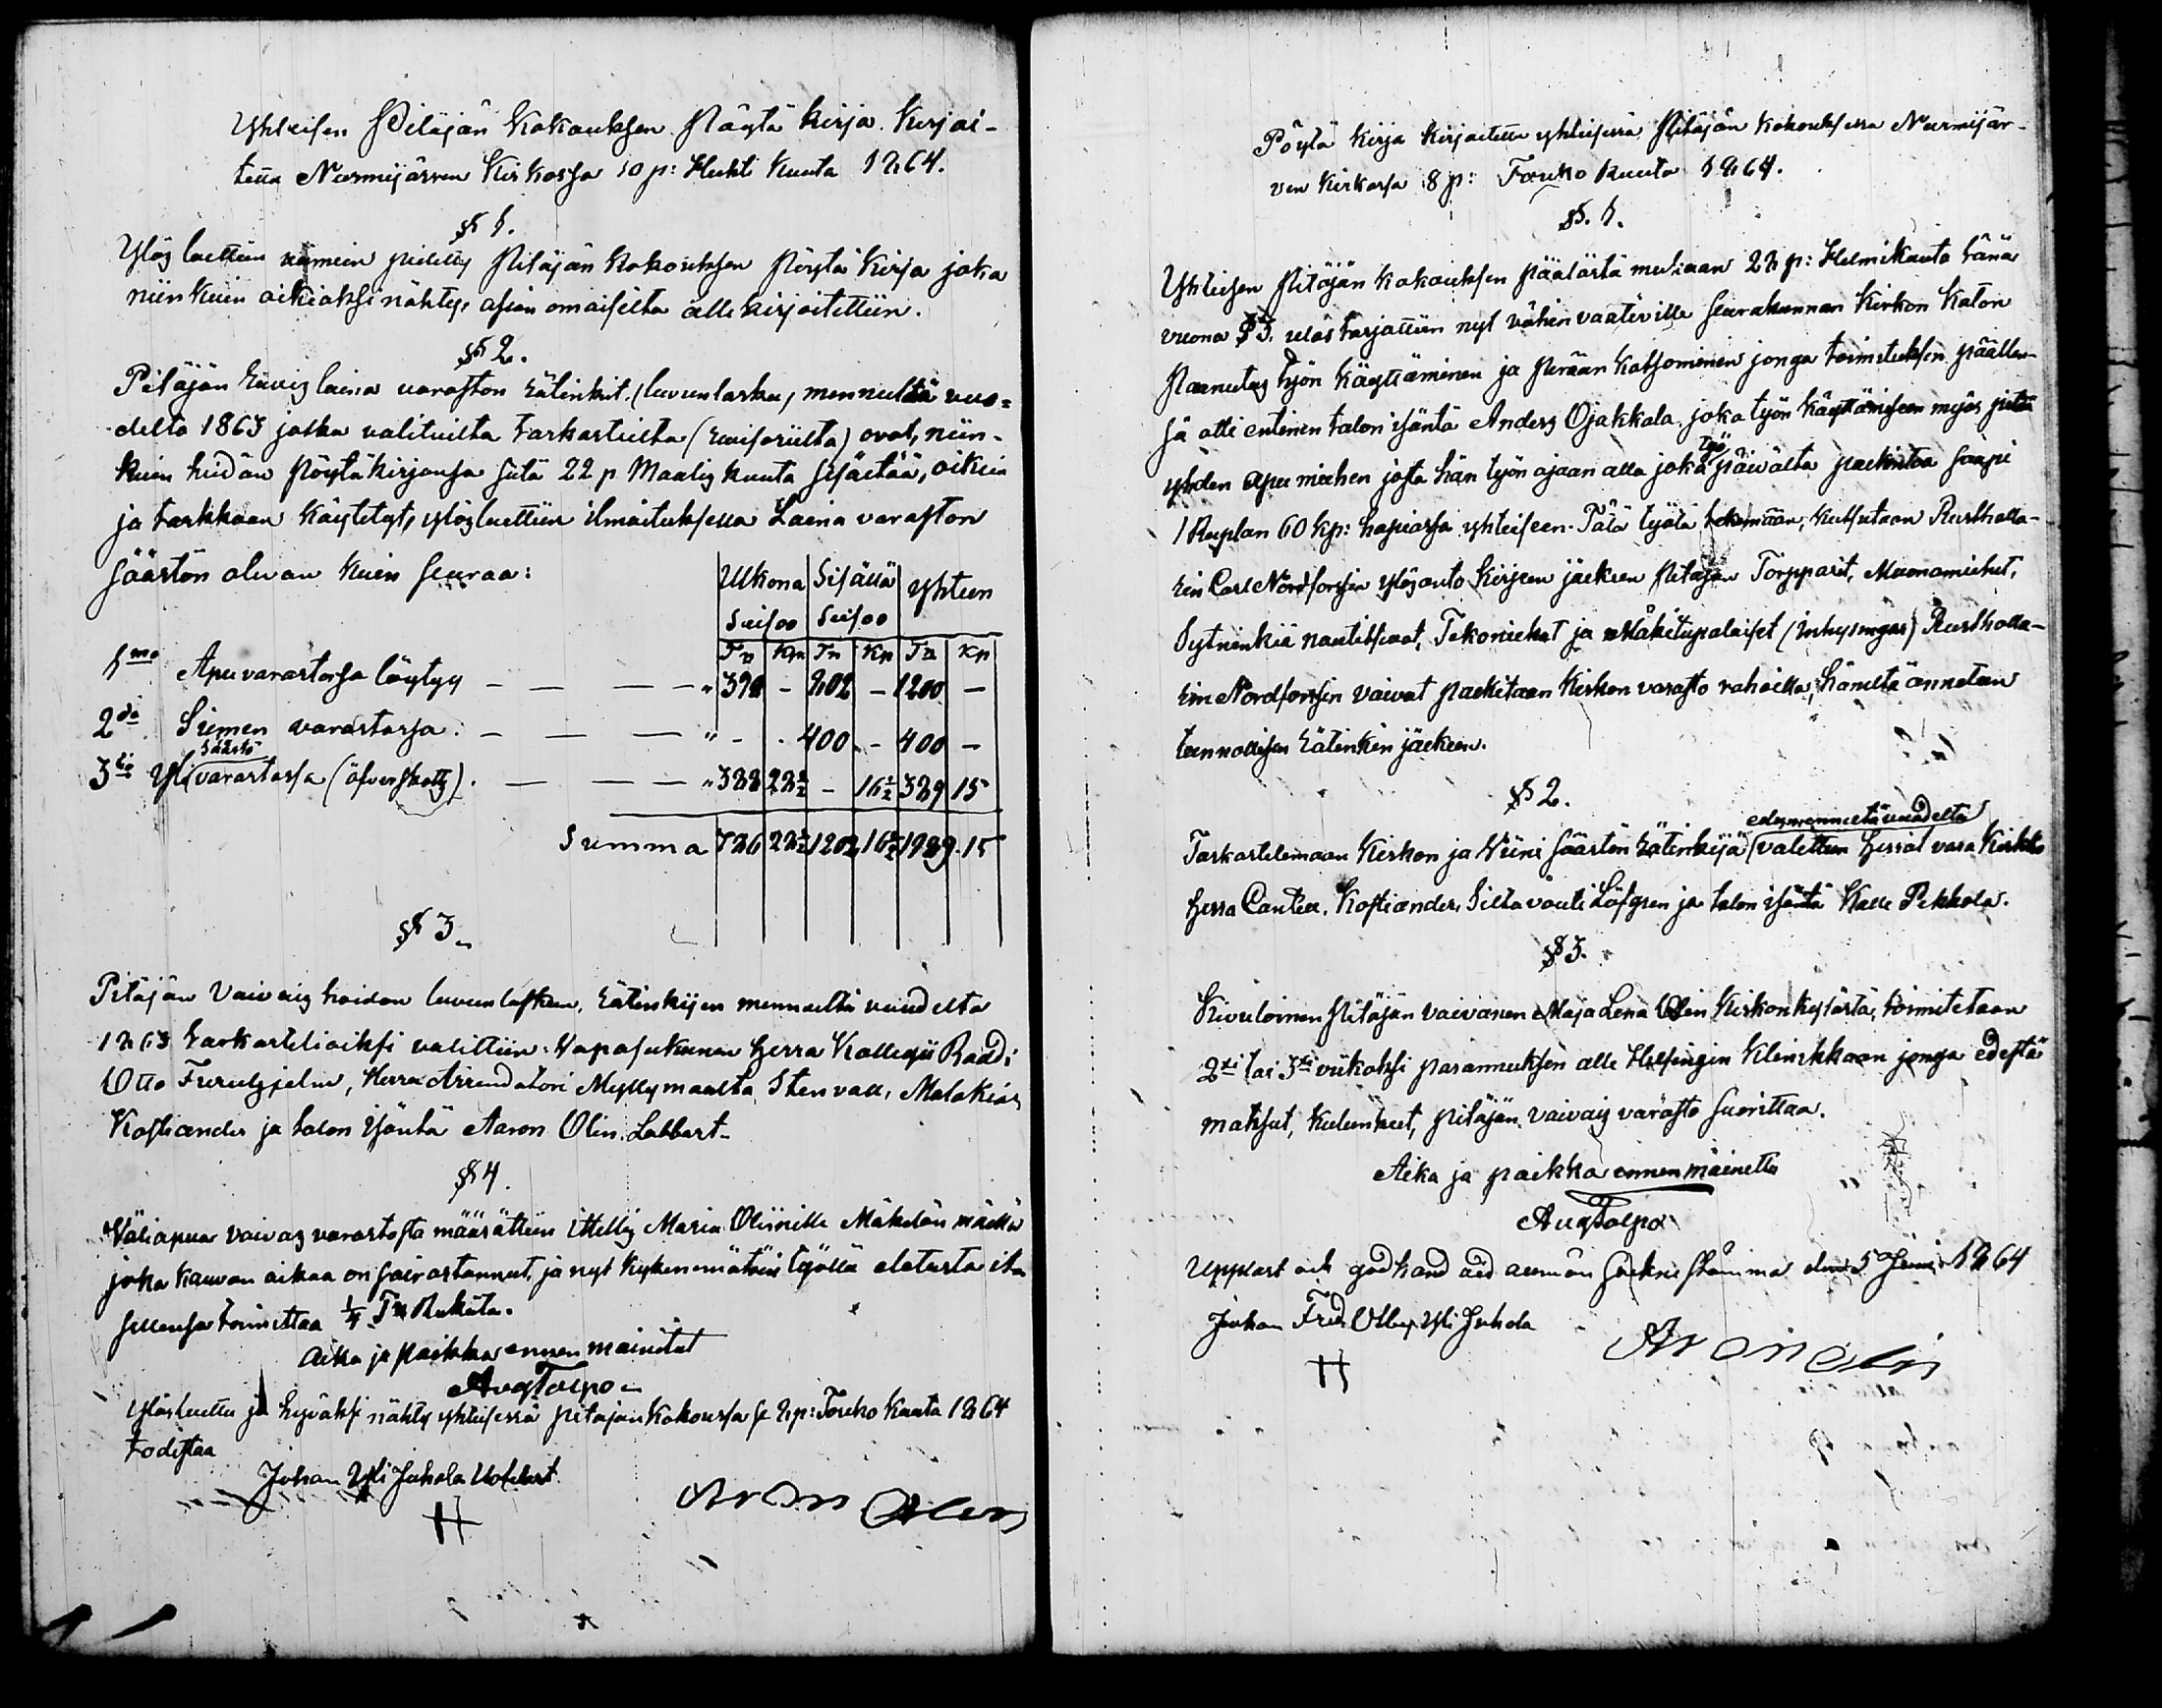 Yhteisen Pitäjän Kokouksen Pöytä kirja. Kirjai-
tettu Nurmijärven Kirkossa 10 p: Huhti Kuuta 1864.
§ 1.
Ylös luettiin viimein pidetty Pitäjän Kokouksen Pöytä Kirja joka
niin kuin oikiaksi nähtys asian omaisilta alle kirjoitettiin.
§ 2.
Pitäjän laina varaston Rätinkit (luvunlasku) mennultä vuo-
delta 1863 jotka valituilta tarkastuilta (Revisoriilta) ovat, niin-
kuin heidän Pöytäkirjansa siitä 22 p Maalis kuuta sisältää, oikein
ja tarkkaan käytetyt, ylösluettiin ilmoituksella Laina varaston
säästön olevan kuin seuraa:
Ulkona Sisällä Yhteen
Seisoo Seisoo
Tn Kp Tn Kp Tn Kp
1mo Apuvarastossa löytyy — — — — " 398 - 802 - 1200 —
2do Siemen varastossa. — — — " - - 400 - 400 —
3tio Yli säästö varastossa (öfverskott). — — — " 388 22½ — 16½ 389 15
Summa 786 22½ 1202 16½ 1989 15
§ 3.
Pitäjän Vaivais hoidon luvun laskun, Rätinkijen mennueltä vuodelta
1863 tarkasteliaiksi valittiin: Vapasukunen Herra Kollegii Raadi
Otto Furuhjelm, Herra Arrendatori Myllymaalta Stenvall, Malakias
Kostiander ja talon isäntä Aaron Olin Labbart.
§ 4.
Väliapua vaivas varastosta määrättiin ittellis Maria Oliinille Mäkelän mäellä
joka kauvan aikaa on sairastannut, ja nyt kykenemätöin työllä elatusta
toimittaa ¼ Tn Rukiita.
Aika ja paikka ennen mainitut
Aug Talpo
Ylösluettu ja hyväksi nähty yhteisessä pitäjän Kokouksa se 8 p: Touko Kuuta 1864
todistaa
Johan Yli Juhola
H
Aron Olin
Pöytä Kirja kirjoitettu yhteisessä Pitäjän Kokouksessa Nurmijär-
ven Kirkossa 8 p: Touko Kuuta 1864.
§. 1.
Yhteisen Pitäjän Kokouksen päätöstä mukaan 28 p: Helmikuuta tänä
vuona § 3. ulos tarjottiin nyt vähin vaativille Seurakunnan Kirkon Katon
Paanutus työn käyttäminen ja Perään Katsominen jonga toimituksen päällen-
sä otti entinen talon isäntä Anders Ojakkala, joka työn käyttämiseen myös pitää
yhden apu miehen josta hän työn ajaan alla joka työ päivältä palkintoa saapi
1 Ruplan 60 kp: hopiassa yhteiseen. Tätä työtä tekemään, kutsutaan Rusthalla-
rin Carl Nordforssin ylösanto kirjeen jälkeen Pitäjän Torpparit, Muonamiehet,
Sytninkiä nautitsevat, Tekomiehet ja Mäkitupalaiset (Inhysingar) Rusthalla-
rin Nordforssin vaivat palkitaan Kirkon varasto rahoilla, häneltä annetun
tunnollisen Rätinkin jälkeen.
§ 2.
Tarkastelemaan Kirkon ja Viini säästön Rätinkijä edesmennueltä vuodelta valittiin Herrat vara Kirkko
herra Cantell, Kostiander, Siltavouti Löfgren ja talon isäntä Kalle Pekkola.
§ 3.
Kivuloinen Pitäjän vaivanen Maja Lena Olin Kirkonkylästä, toimitetaan
2ksi tai 3ksi viikoksi parannuksen alle Helsingin Kliinikkaan jonga edestä
maksut, kulunkut, pitäjän vaivais varasto suorittaa.
Aika ja paikka ennen mainettu
Aug Talpo
Uppläst och godkänd vid allmän Sockne stämma den 5 Juni 1864
Johan Fred Ylli Juhola
H
Aron Olin